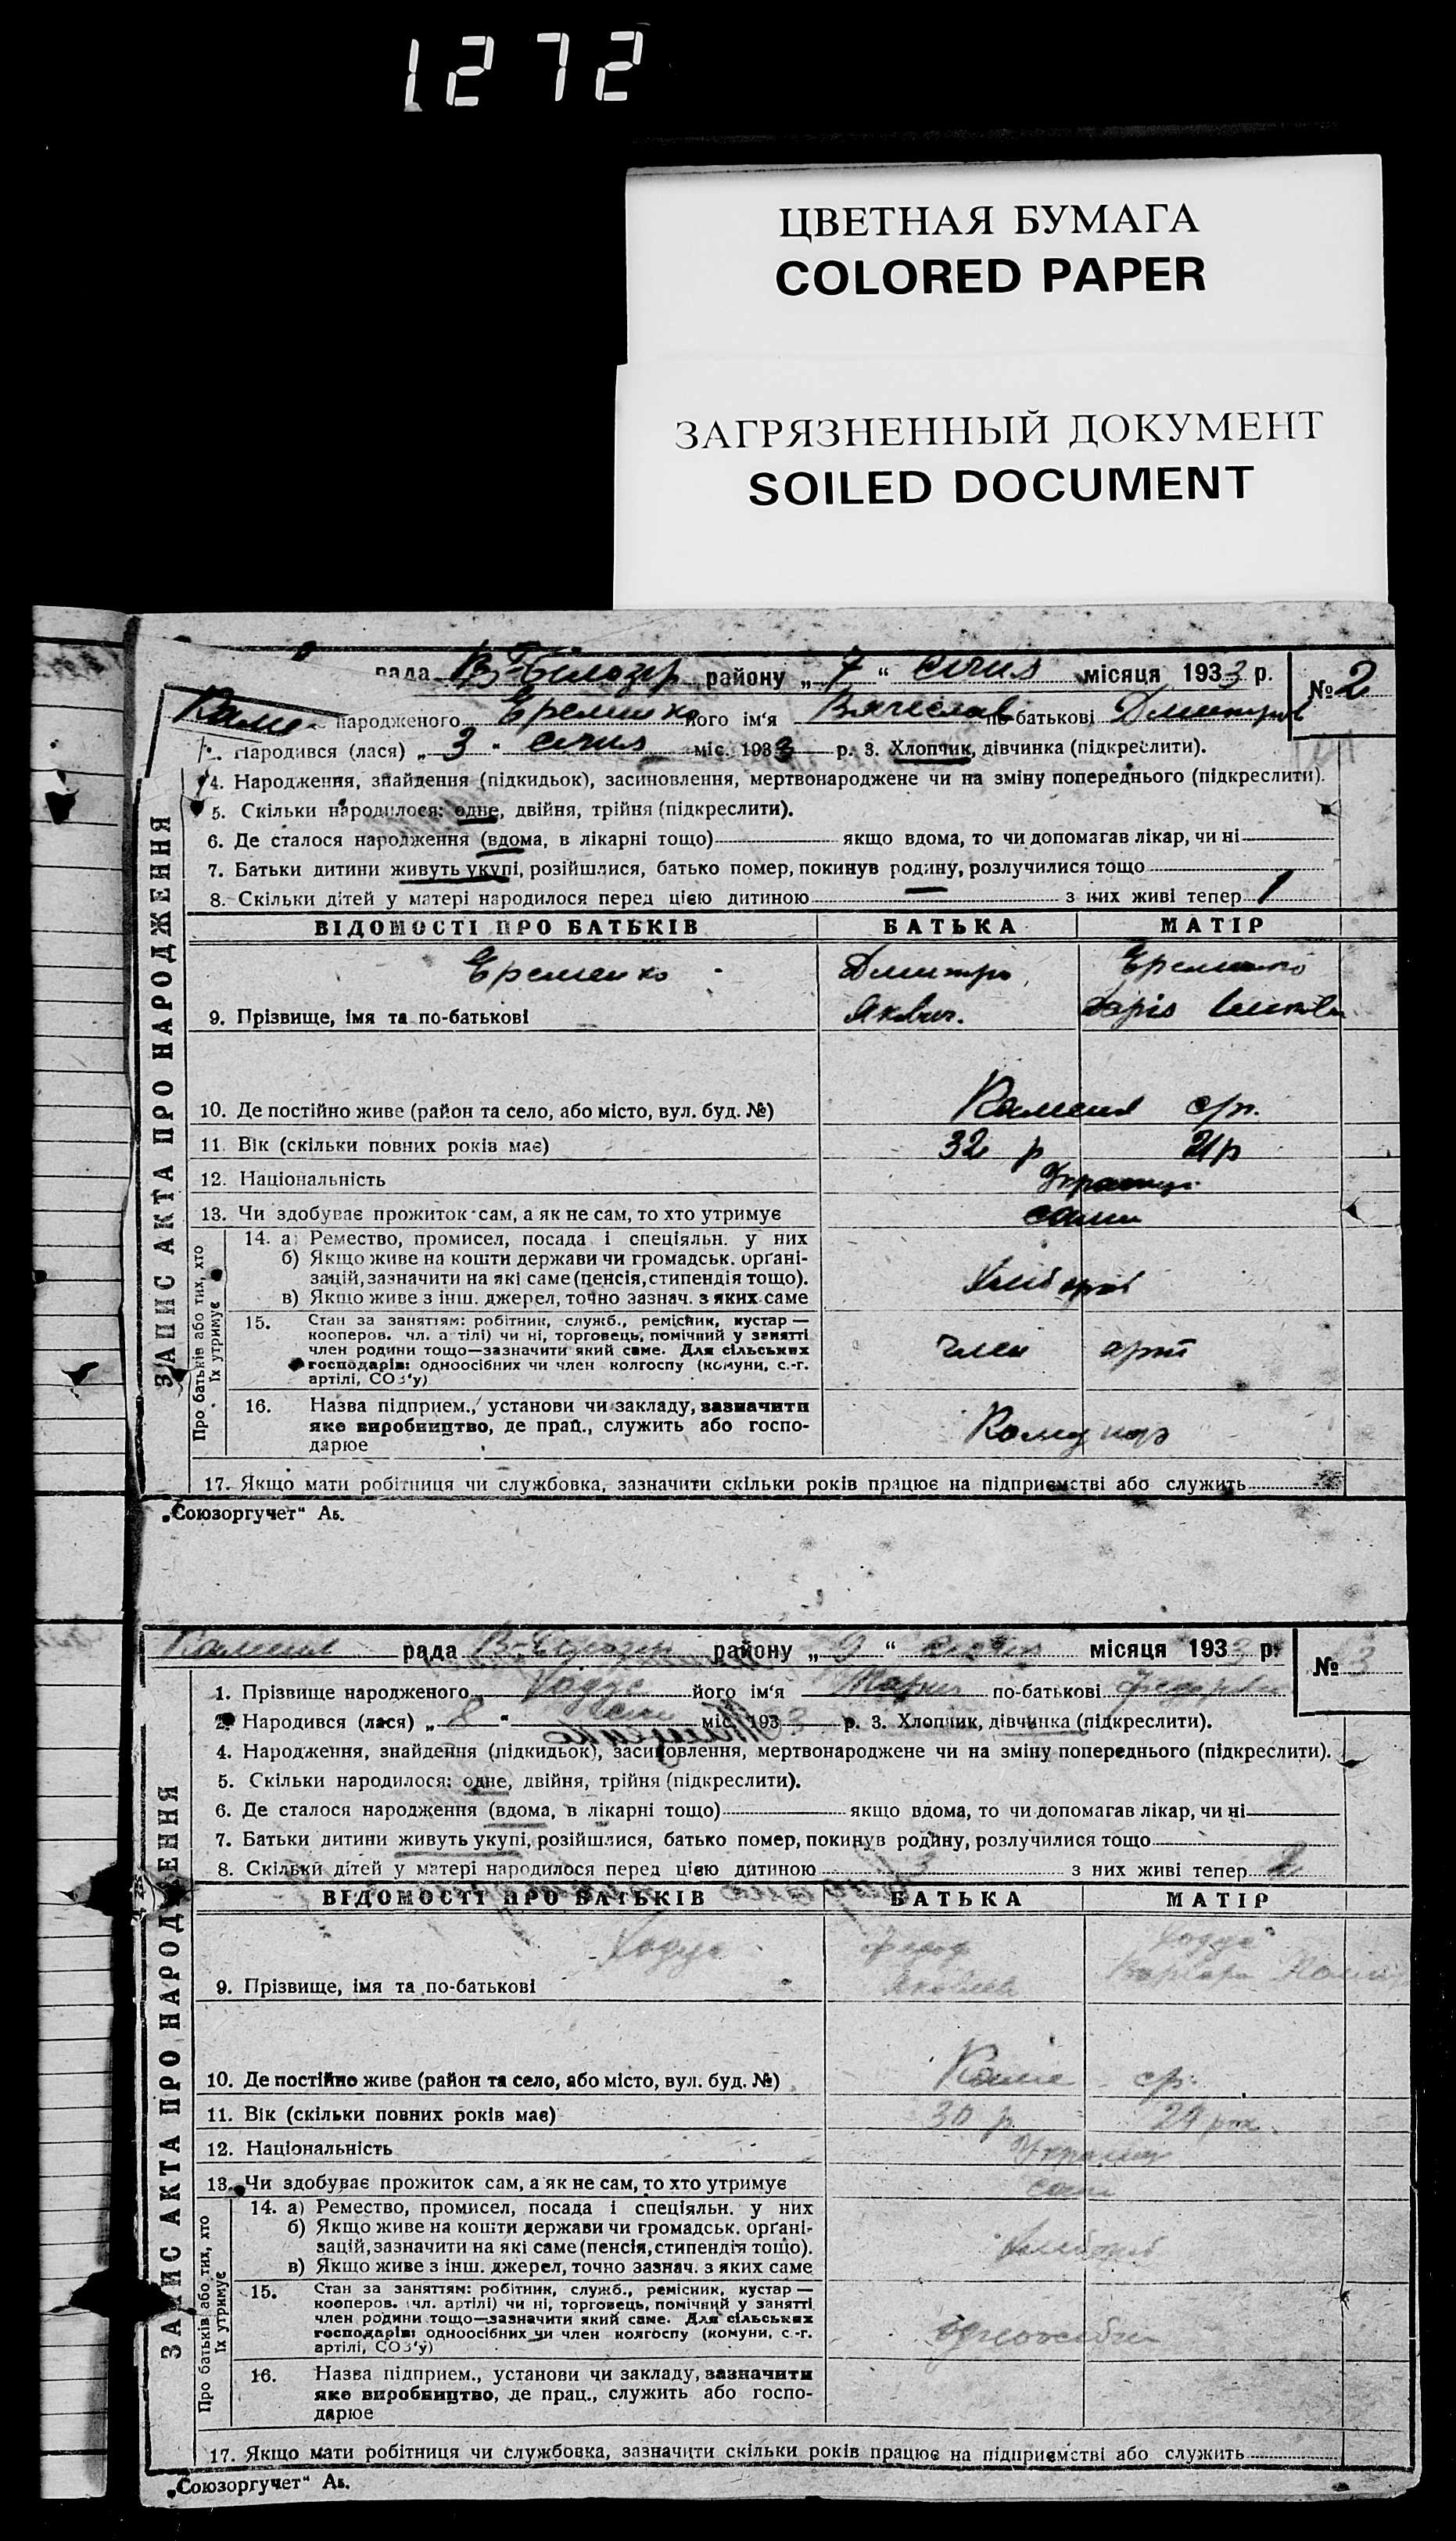 1272
ЦВЕТНАЯ БУМАГА
COLORED PAPER
ЗАГРЯЗНЕННЫЙ ДОКУМЕНТ
SOILED DOCUMENT
рада В-Білозер району „ 7 “ січня місяця 1933 р. № 2
народженого Еременко його ім'я Вячеслав по-батькові Дмитров
Народився (лася) „ 3 “ січня міс. 1933 р. 3. Хлопчик, дівчинка (підкреслити).
4. Народження, знайдення (підкидьок), засиновлення, мертвонароджене чи на зміну попереднього (підкреслити).
5. Скільки народилося: одне, двійня, трійня (підкреслити).
6. Де сталося народження (вдома, в лікарні тощо) якщо вдома, то чи допомагав лікар, чи ні
7. Батьки дитини живуть укупі, розійшлися, батько помер, покинув родину, розлучилися тощо
8. Скільки дітей у матері народилося перед цією дитиною — з них живі тепер 1
ЗАПИС АКТА ПРО НАРОДЖЕННЯ
ВІДОМОСТІ ПРО БАТЬКІВ БАТЬКА МАТІР
Еременко Дмитро Еременко
9. Прізвище, імя та по-батькові Яквич.
10. Де постійно живе (район та село, або місто, вул. буд. №) Камения с/р.
11. Вік (скільки повних років має) 32 р 21р
12. Національність Українці
13. Чи здобуває прожиток сам, а як не сам, то хто утримує сами
Про батьків або тих, хто їх утримує
14. а) Ремество, промисел, посада і спеціяльн. у них
б) Якщо живе на кошти держави чи громадськ. орґані-
зацій, зазначити на які саме (пенсія, стипендія тощо).
в) Якщо живе з інш. джерел, точно зазнач. з яких саме
15. Стан за заняттям: робітник, служб., ремісник, кустар —
кооперов. чл. артілі) чи ні, торговець, помічний у занятті
член родини тощо—зазначити який саме. Для сільських
господарів: одноосібних чи член колгоспу (комуни, с.-г.
артілі, СОЗ'у)
член арт
16. Назва підприем., установи чи закладу, зазначити
яке виробництво, де прац., служить або госпо-
дарює
Комунар
17. Якщо мати робітниця чи службовка, зазначити скільки років працює на підприємстві або служить
„Союзоргучет“ Аб.
Камения рада В-Білозер району „ 9 “ січня місяця 1933 р. № 3
1. Прізвище народженого Ходус його ім'я Мария по-батькові Федоровн
2. Народився (лася) „ 8 “ січн міс. 1933 р. 3. Хлопчик, дівчинка (підкреслити).
4. Народження, знайдення (підкидьок), засиновлення, мертвонароджене чи на зміну попереднього (підкреслити).
5. Скільки народилося: одне, двійня, трійня (підкреслити).
6. Де сталося народження (вдома, в лікарні тощо) якщо вдома, то чи допомагав лікар, чи ні
7. Батьки дитини живуть укупі, розійшлися, батько помер, покинув родину, розлучилися тощо
8. Скільки дітей у матері народилося перед цією дитиною 3 з них живі тепер 2
ЗАПИС АКТА ПРО НАРОДЖЕННЯ
ВІДОМОСТІ ПРО БАТЬКІВ БАТЬКА МАТІР
Ходус Федор Ходус
9. Прізвище, імя та по-батькові Яковлев Варвара
10. Де постійно живе (район та село, або місто, вул. буд. №) Каме ср.
11. Вік (скільки повних років має) 30 р 29 рок
12. Національність Українці
13. Чи здобуває прожиток сам, а як не сам, то хто утримує сами
Про батьків або тих, хто їх утримує
14. а) Ремество, промисел, посада і спеціяльн. у них
б) Якщо живе на кошти держави чи громадськ. орґані-
зацій, зазначити на які саме (пенсія, стипендія тощо).
в) Якщо живе з інш. джерел, точно зазнач. з яких саме
Хлібороб
15. Стан за заняттям: робітник, служб., ремісник, кустар —
кооперов. чл. артілі) чи ні, торговець, помічний у занятті
член родини тощо—зазначити який саме. Для сільських
господарів: одноосібних чи член колгоспу (комуни, с.-г.
артілі, СОЗ'у)
16. Назва підприем., установи чи закладу, зазначити
яке виробництво, де прац., служить або госпо-
дарює
17. Якщо мати робітниця чи службовка, зазначити скільки років працює на підприємстві або служить
„Союзоргучет“ Аб.